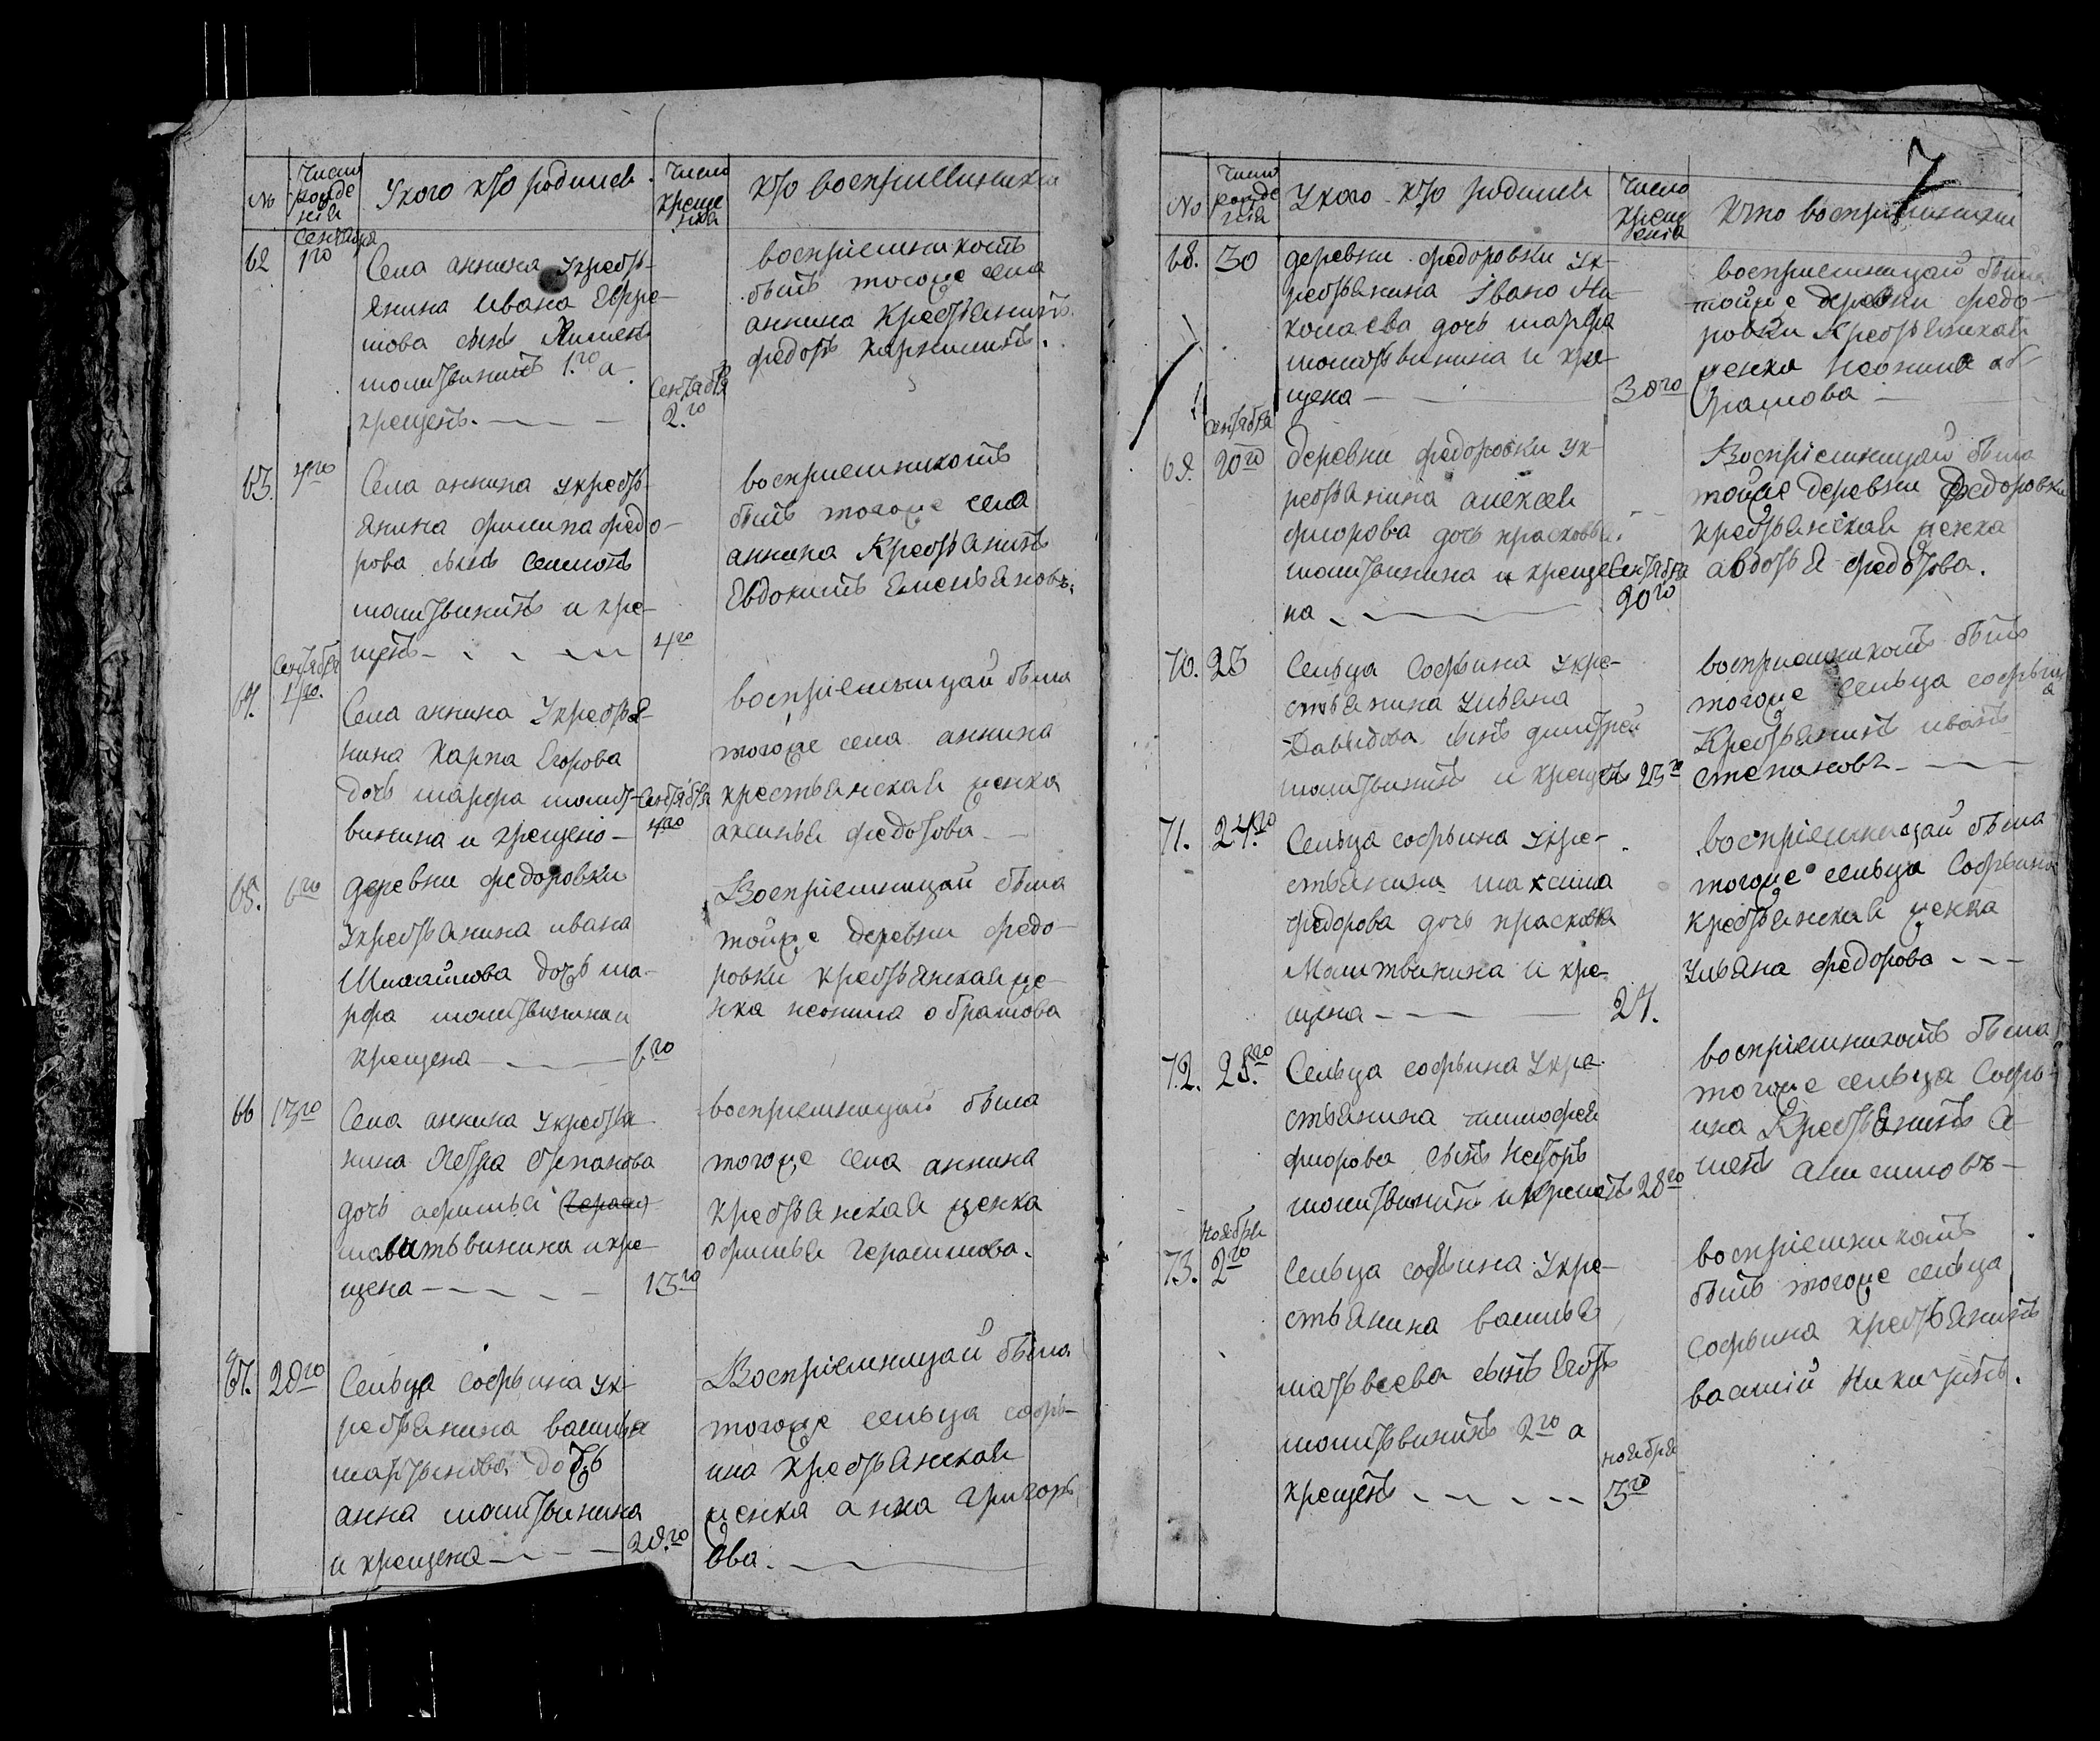 №
Число рожде нія
У кого кто родился
Число креще нія
кто восприемники
62
Сентября 1го
Села аннина у кресть-
янина Ивана Ефре-
мова сынъ
молитвинъ 1.го а
крещенъ.
Сентября 2.го
восприемникомъ
былъ тогоже села
аннина Крестьянинъ
федотъ
63.
4го
Села аннина у кресть-
янина филипа федо-
рова сынъ Симионъ
молитвинъ и кре-
щенъ
4го
восприемникомъ
былъ тогоже села
аннина Крестьянинъ
Евдокимъ Емельяновъ.
64.
Сентября 4го.
Села аннина У крестья-
нина Карпа Егорова
дочь марфа молит-
винина и крещено
Сентября 4го
восприемницай была
тогоже села аннина
крестьянская женка
аксинья федотова
65.
6го
деревни федоровки
У крестьянина ивана
Михайлова дочь ма-
рфа молитвинина и
крещена
6го
Восприемницай была
тойже деревни федо-
ровки крестьянская же-
нка неонила обрамова
66
13го
Села аннина У крестья-
нина Петра Степанова
дочь афимья
молитьвинина и кре
щена
13го
восприемницай была
тогоже села аннина
крестьянская женка
офимья Герасимова.
67.
28го
Сельца софьина у к-
рестьянина василья
мартынова дочь
анна молитвинина
и крещена
28.го
Восприемницай была
тогоже сельца софь-
ина крестьянская
женка анна григорь
ева.
7
№
Число рожде нія
У кого кто родился
Число крещ енія
Кто восприемники
68.
30
деревни федоровки у к-
рестьянина Івано Ни
колаева дочь марфа
молитвинина и кре-
щена
30го
восприемницай была
тойже деревни федо-
ровки Крестьянская
женка неонила аб-
рамова
69.
Сентября 20го
деревни федоровки у к-
рестьянина алексея
флорова дочь прасковья.
молитвинина и креще
на
Сентября 20го
Восприемницай была
тойже деревни Федоровки
крестьянская женка
авдотья федотова.
70.
23
Сельца Софьина у кре-
стьянина Ульяна
Давыдова сынъ димитрей
молитвинъ и крещенъ
23го
восприемникомъ былъ
тогоже сельца софьина
Крестьянинъ иванъ
степановъ
71.
24.го
Сельца софьина у кре-
стьянина максима
федорова дочь прасковья
Молитвинина и кре-
щена
24.
восприемницай была
тогоже сельца Софьина
крестьянская женка
Ульяна федорова
72.
28.го
Сельца софьина У кре-
стьянина тимофея
флорова сынъ Несторъ
молитвинъ и крещенъ
28го
восприемникомъ была
тогоже сельца Софь-
ина Крестьянинъ
73.
Ноября 2го
Сельца софьина У кре-
стьянина василья
матьвеева сынъ Егоръ
молитьвинъ 2го а
крещенъ
ноября 3го
восприемникомъ
былъ тогоже сельца
софьина крестьянинъ
василій Никитинъ.